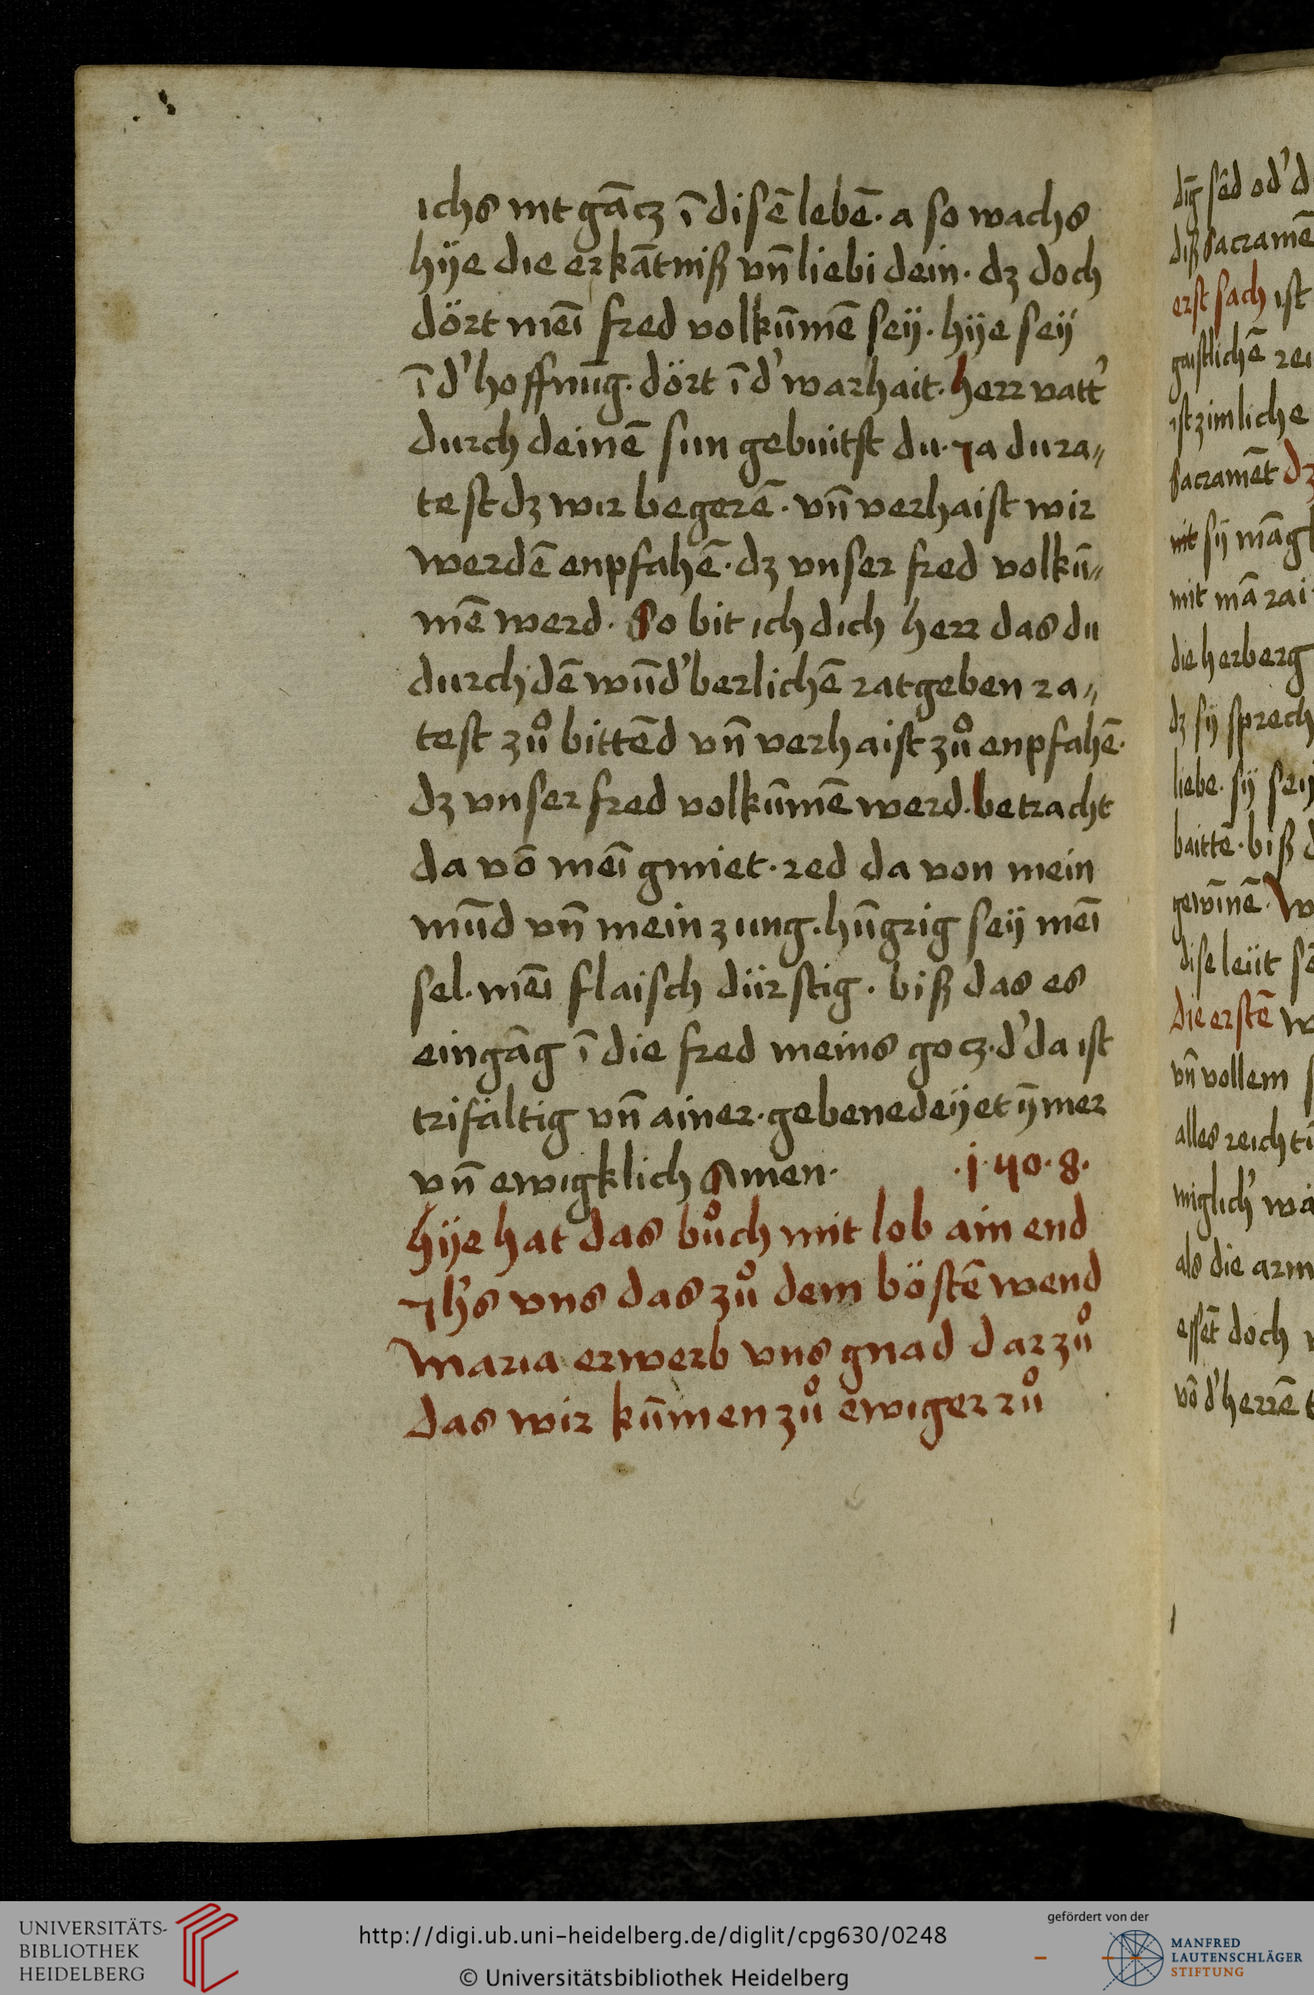 ichs nit gācz ī disē lebē · a so wachs
hÿe die erkātniß vn̄ liebi dein · dz doch
dört meī fred volkūmē seÿ · hÿe seÿ
ī d' hoffnūg · dört ī d' warhait · herr vatt'
durch deinē sun gebuitst du · ja du ra„
test dz wir begerē · vn̄ verhaist wir
werdē enpfahē · dz vnser fred volkū„
mē werd · So bit ich dich herr das du
durch dē wūd'berlichē ratgeben ra„
test zuͦ bittēd vn̄ verhaist zuͦ enpfahē ·
dz vnser fred volkūmē werd · betracht
da vō meī gmiet · red da von mein
mūd vn̄ mein zung · hūgrig seÿ meī
sel · meī flaisch dürstig · biß das es
eingāg ī die fred meins gocz · d' da ist
trifältig vn̄ ainer · gebenedeÿet ȳmer
vn̄ ewigklich Amen · · j · 40 · 8 ·
Hÿe hat das buͦch mit lob ain end
Jh's vns das zuͦ dem böstē wend
Maria erwerb vns gnad dar zuͦ
das wir kūmen zuͦ ewiger ruͦ
dig sēd od' d
diß Sacramē
erst sach ist
gaistlichē rei
ist zimliche
Sacramēt dz
nit sÿ māg
mit mā rai
die herberg
dz sÿ sprech
liebe · sÿ seÿ
baittē · biß d
gewīnē · W
dise leüt sē
Die erstē w
vn̄ vollem s
alles reichtū
miglich' wä
als die arm
essēt doch
vō d' herrē
UNIVERSITÄTS-
BIBLIOTHEK
HEIDELBERG
http://digi.ub.uni-heidelberg.de/diglit/cpg630/0248
© Universitätsbibliothek Heidelberg
gefördert von der
MANFRED
LAUTENSCHLÄGER
STIFTUNG